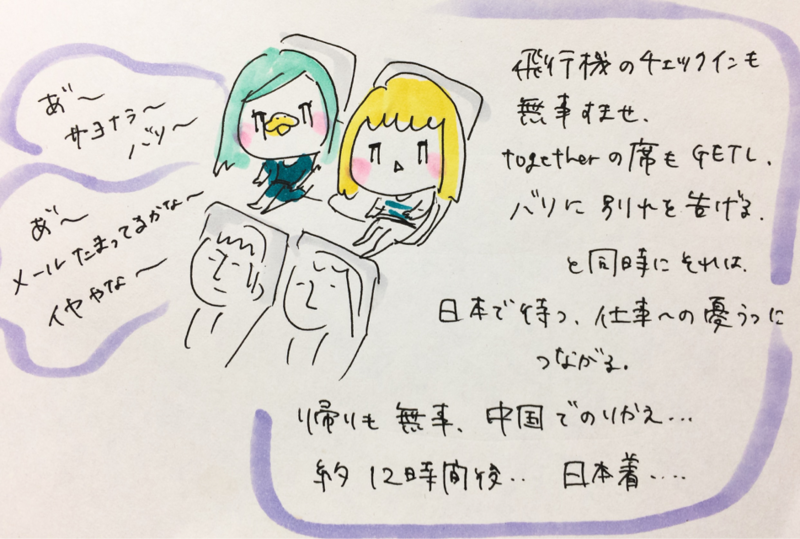 あ゛〜
サヨナラ〜
バリ〜
あ゛〜
メールたまってるかな〜
イヤやな〜
飛行機のチェックインも
無事すませ、
togetherの席もGETし、
バリに別れを告げる。
と同時にそれは、
日本で待つ、仕事への憂うつに
つながる。
帰りも無事、中国でのりかえ…
約12時間後‥ 日本着‥‥